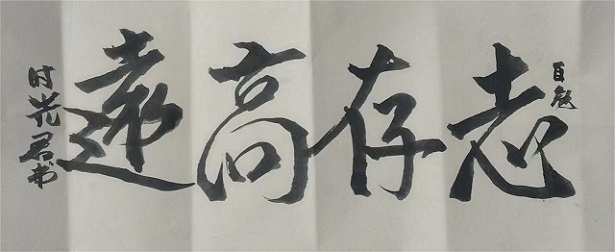 自勉
志存高遠
时光君书